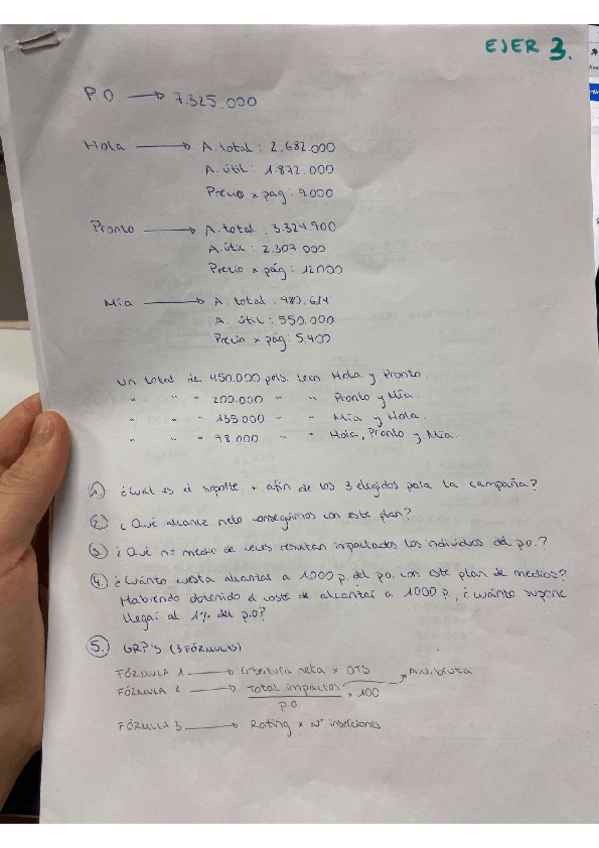 EJER 3.
P.O. → 7.325.000
Hola → A. total : 2.682.000
A. útil : 1.872.000
Precio x pag : 9000
Pronto → A. total : 3.324.900
A. útil : 2.307.000
Precio x pág : 12.000
Mía → A. total : 983.614
A. útil : 550.000
Precio x pág : 5.400
Un total de 450.000 pers. leen Hola y Pronto.
" " " 200.000 " " Pronto y Mía.
" " " 135.000 " " Mía y Hola.
" " " 98.000 " " Hola, Pronto y Mía.
1. ¿Cuál es el soporte + afín de los 3 elegidos para la campaña?
2. ¿Qué alcance neto conseguimos con este plan?
3. ¿Qué nº medio de veces resultan impactados los individuos del p.o.?
4. ¿Cuánto cuesta alcanzar a 1000 p. del p.o. con este plan de medios?
Habiendo obtenido el coste de alcanzar a 1000 p, ¿cuánto supone
llegar al 1% del p.o?
5. GRP'S (3 FÓRMULAS)
FÓRMULA 1 → Cobertura neta x OTS
FÓRMULA 2 → Total impactos x 100 → Au. bruta
P.O.
FÓRMULA 3 → Rating x Nº inserciones